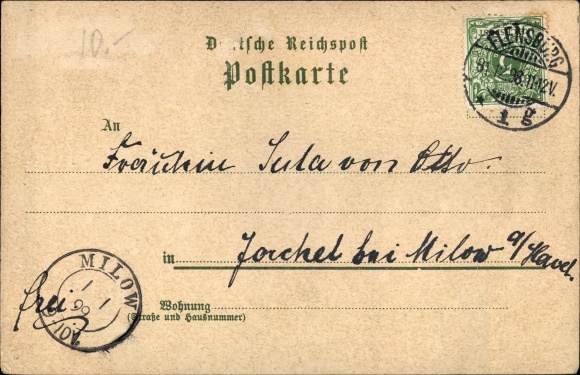 10.-
Deutsche Reichspost
Postkarte
FLENSBURG
11-12V.
1 g
An
Fräulein Jula von Otto.
in Jerchel bei Milow a/Havel.
MILOW
1 1
99
frei
Wohnung
(Straße und Hausnummer)